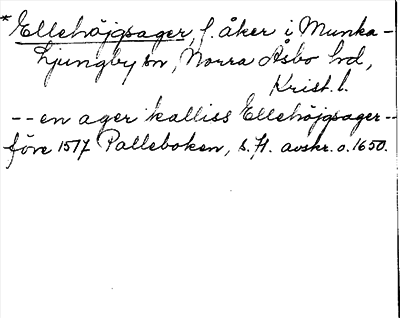 * Ellehöjgsager, f. åker i Munka-
Ljungby sn, Norra Åsbo hd,
Krist. l.
-- en ager kalliss Ellehöjgsager --
före 1517 Palleboken, s. 71. avskr. o. 1650.